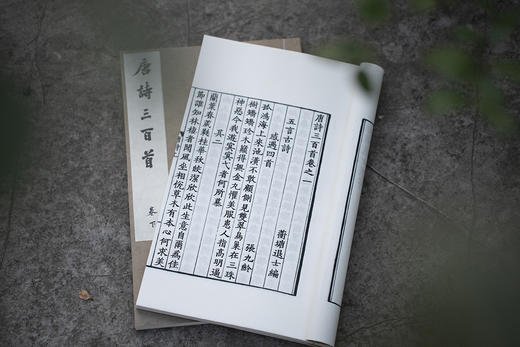 唐詩三百首卷之一
蘅塘退士編
五言古詩
感遇四首 張九齡
孤鴻海上來池潢不敢顧側見雙翠鳥巢在三珠
樹矯矯珍木巔得無金丸懼美服患人指高明逼
神惡今我遊冥冥弋者何所慕
其二
蘭葉春葳蕤桂華秋皎潔欣欣此生意自爾為佳
節誰知林棲者聞風坐相悅草木有本心何求美
唐詩三百首
卷下